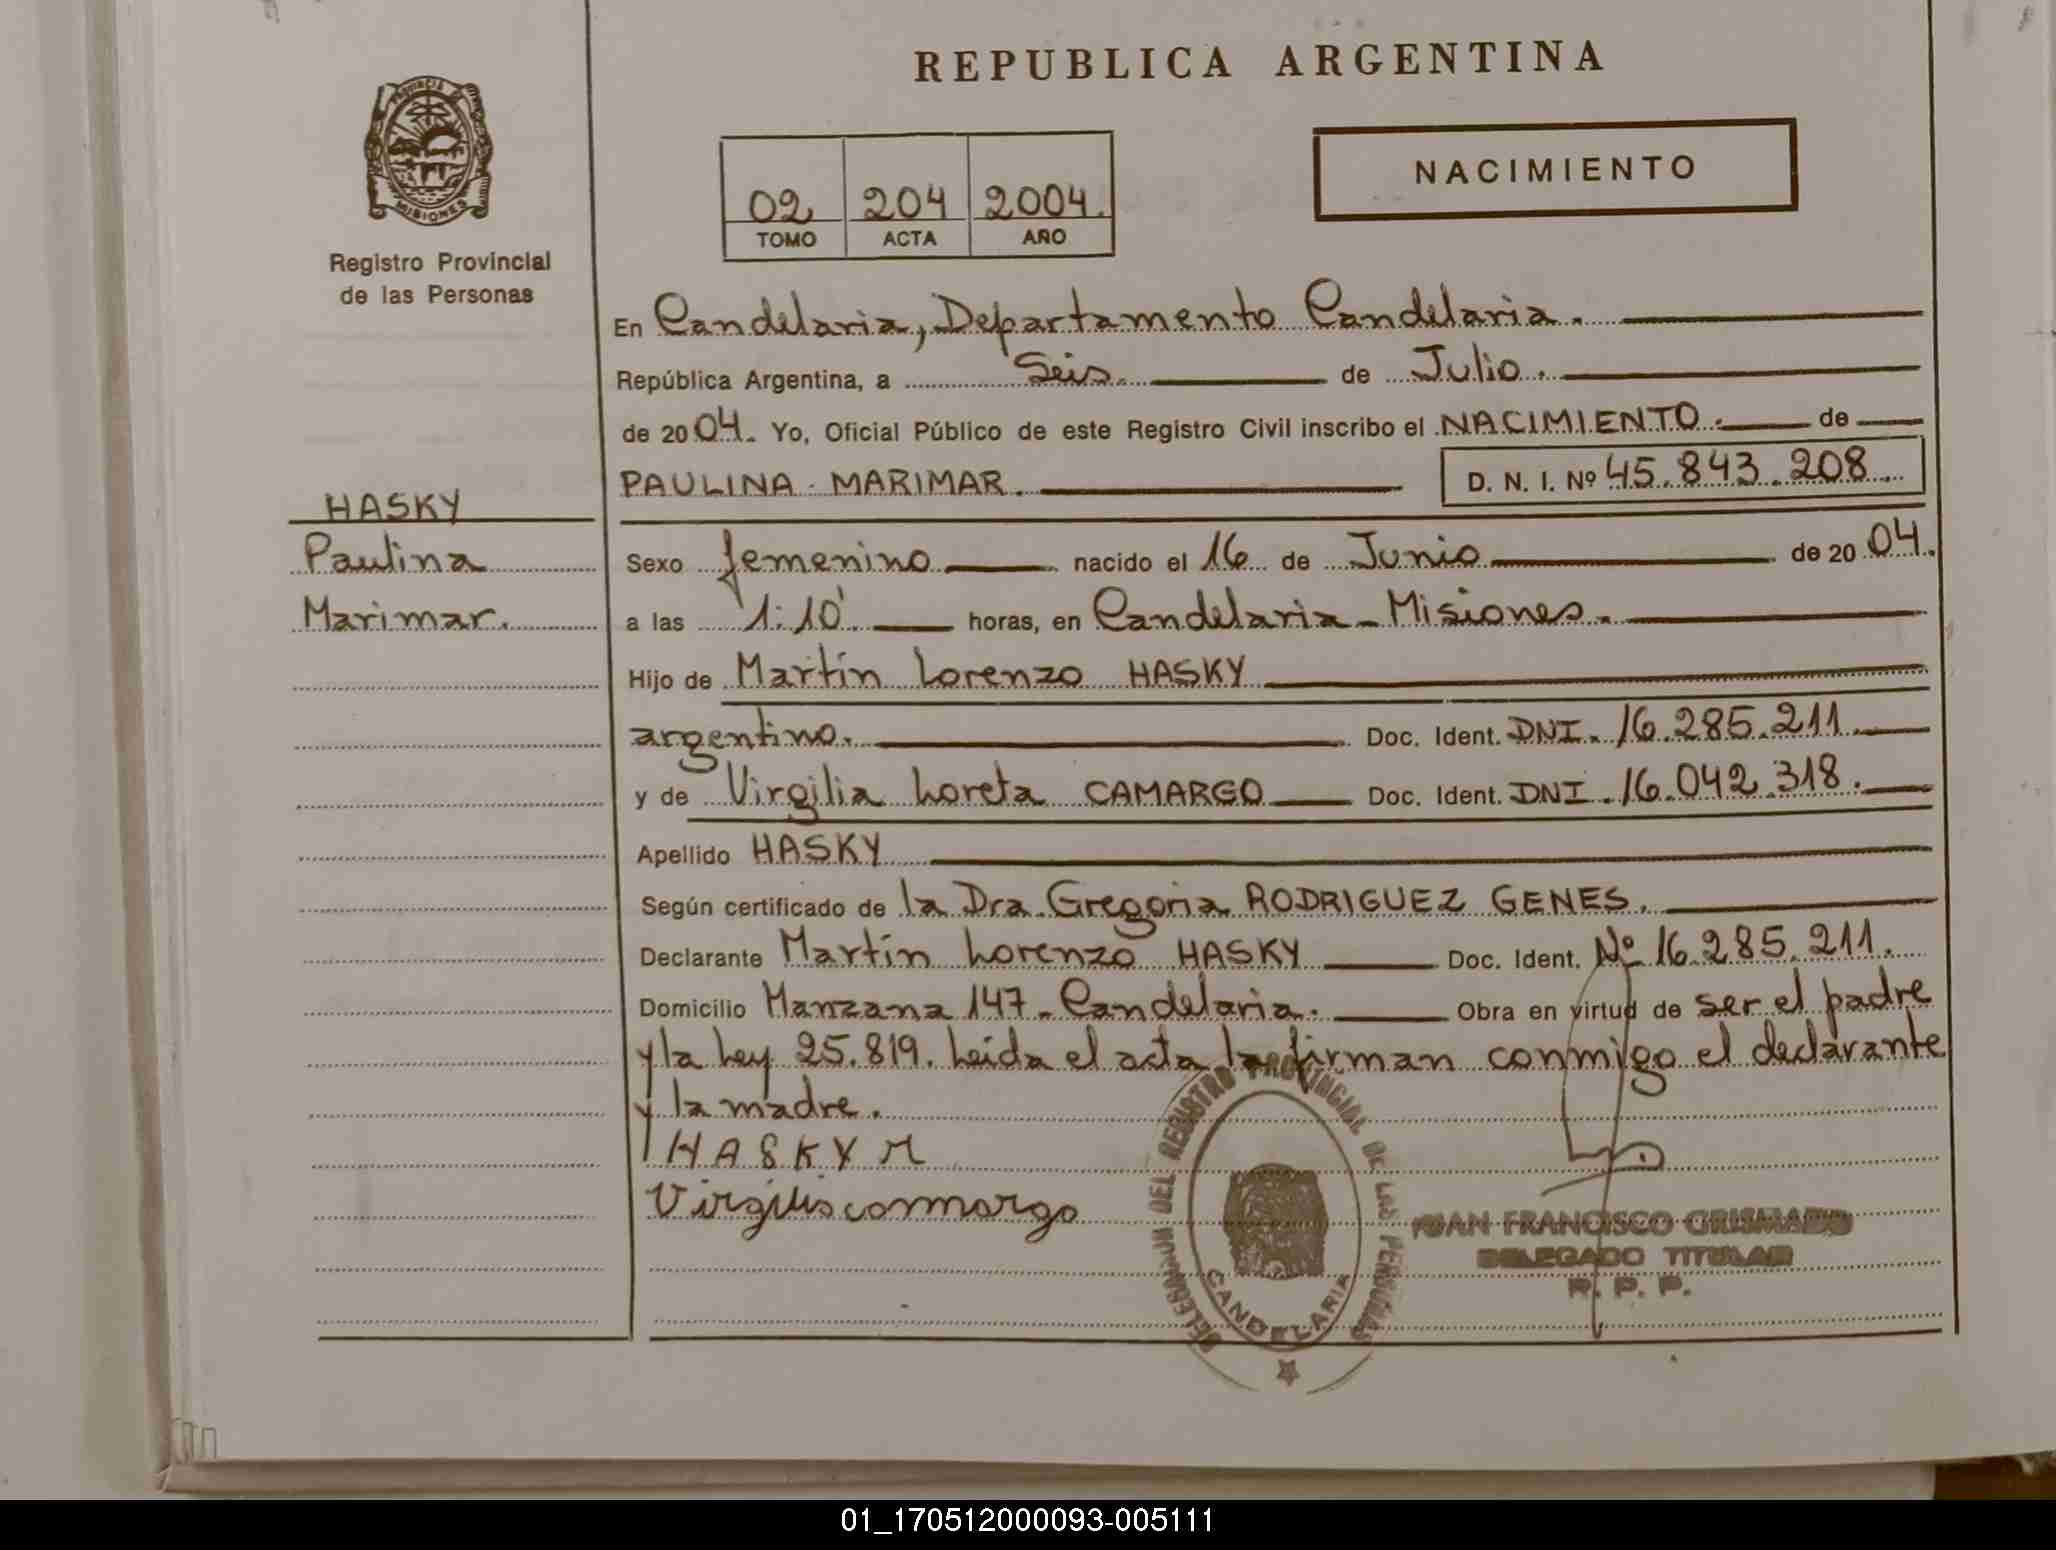 REPUBLICA ARGENTINA
PROVINCIA DE
MISIONES
Registro Provincial
de las Personas
02 204 2004.
TOMO ACTA AÑO
NACIMIENTO
En Candelaria, Departamento Candelaria.
República Argentina, a Seis. de Julio.
de 2004. Yo, Oficial Público de este Registro Civil inscribo el NACIMIENTO. de
PAULINA MARIMAR. D. N. I. Nº 45.843.208
HASKY
Paulina
Marimar.
Sexo femenino nacido el 16 de Junio de 2004.
a las 1:10'. horas, en Candelaria - Misiones.
Hijo de Martín Lorenzo HASKY
argentino. Doc. Ident. DNI. 16.285.211
y de Virgilia Loreta CAMARGO Doc. Ident. DNI. 16.042.318.
Apellido HASKY
Según certificado de la Dra. Gregoria RODRIGUEZ GENES.
Declarante Martín Lorenzo HASKY Doc. Ident. Nº 16.285.211.
Domicilio Manzana 147 - Candelaria. Obra en virtud de ser el padre
y la Ley 25.819. Leida el acta la firman conmigo el declarante
y la madre.
HASKY M
Virgilia camargo
DELEGACION DEL REGISTRO PROVINCIAL DE LAS PERSONAS
CANDELARIA
JUAN FRANCISCO GRISMADO
DELEGADO TITULAR
R. P. P.
01_170512000093-005111